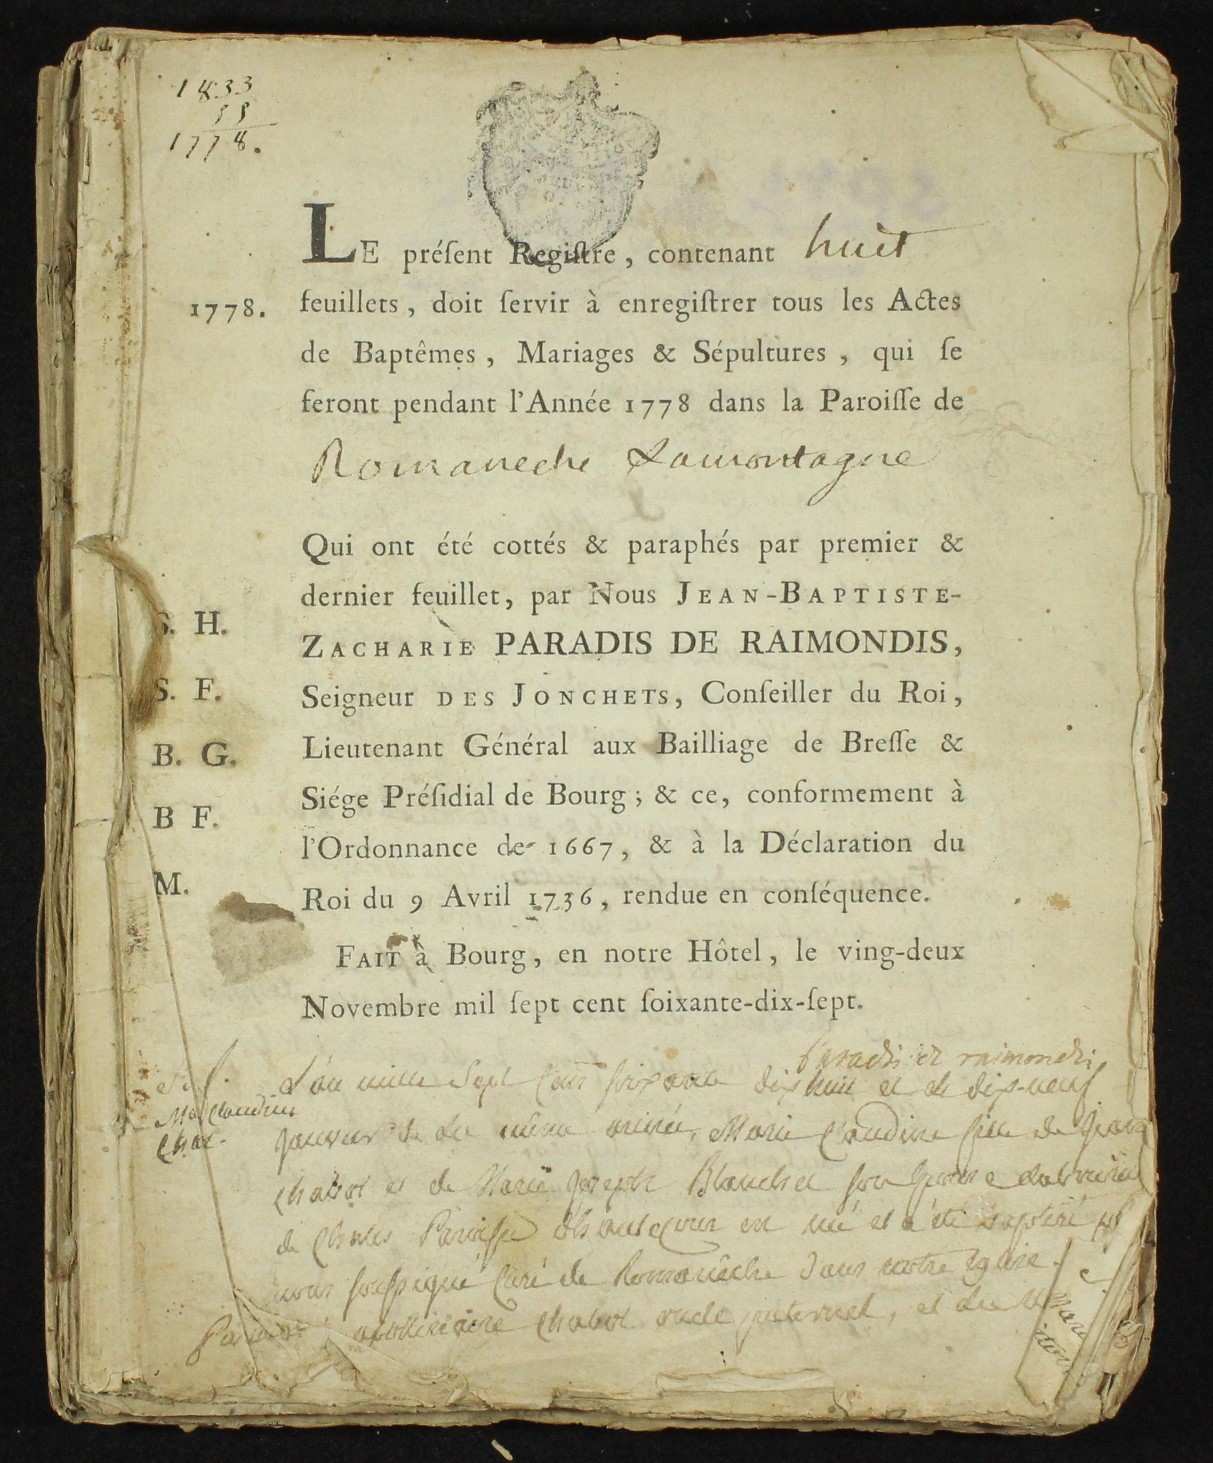 1833
55
1778.
LE préſent Regiſtre, contenant huit
1778.
feuillets, doit ſervir à enregiſtrer tous les Actes
de Baptêmes, Mariages & Sépultures, qui ſe
feront pendant l'Année 1778 dans la Paroiſſe de
Romaneche Lamontagne
Qui ont été cottés & paraphés par premier &
dernier feuillet, par Nous JEAN-BAPTISTE-
ZACHARIE PARADIS DE RAIMONDIS,
Seigneur DES JONCHETS, Conſeiller du Roi,
Lieutenant Général aux Bailliage de Breſſe &
Siége Préſidial de Bourg; & ce, conformement à
l'Ordonnance de 1667, & à la Déclaration du
Roi du 9 Avril 1736, rendue en conſéquence.
FAIT à Bourg, en notre Hôtel, le ving-deux
Novembre mil ſept cent ſoixante-dix-ſept.
S. H.
S. F.
B. G.
B F.
M.
Paradis de raimondis
L'an mille Sept Cent soixante dix huit et le dix-neuf
Mie Claudine
Chat.
janvier de la même année, Marie Claudine fille de
chabot et de Marie Joseph Blanchet son épouse
de Paroisse d'hautecour est né et a été
nous soussigné Curé de Romanêche dans notre Eglise.
chabot oncle paternel, et